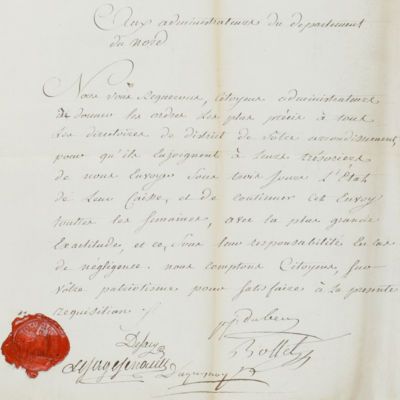 Aux administrateurs du departement
du nord
Nous vous requerons, Citoyens administrateurs
de donner les ordres les plus précis à tous
les directoires de district de votre arrondissement,
pour qu'ils enjoignent à leurs trésoriers
de nous envoyer sous trois jours l'État
de leur Caisse, et de continuer cet Envoy
toutes les semaines, avec la plus grande
Exactitude, et ce, sous leur responsabilité en cas
de négligence. nous comptons Citoyens, sur
vôtre patriotisme pour satisfaire à la presente
requisition.